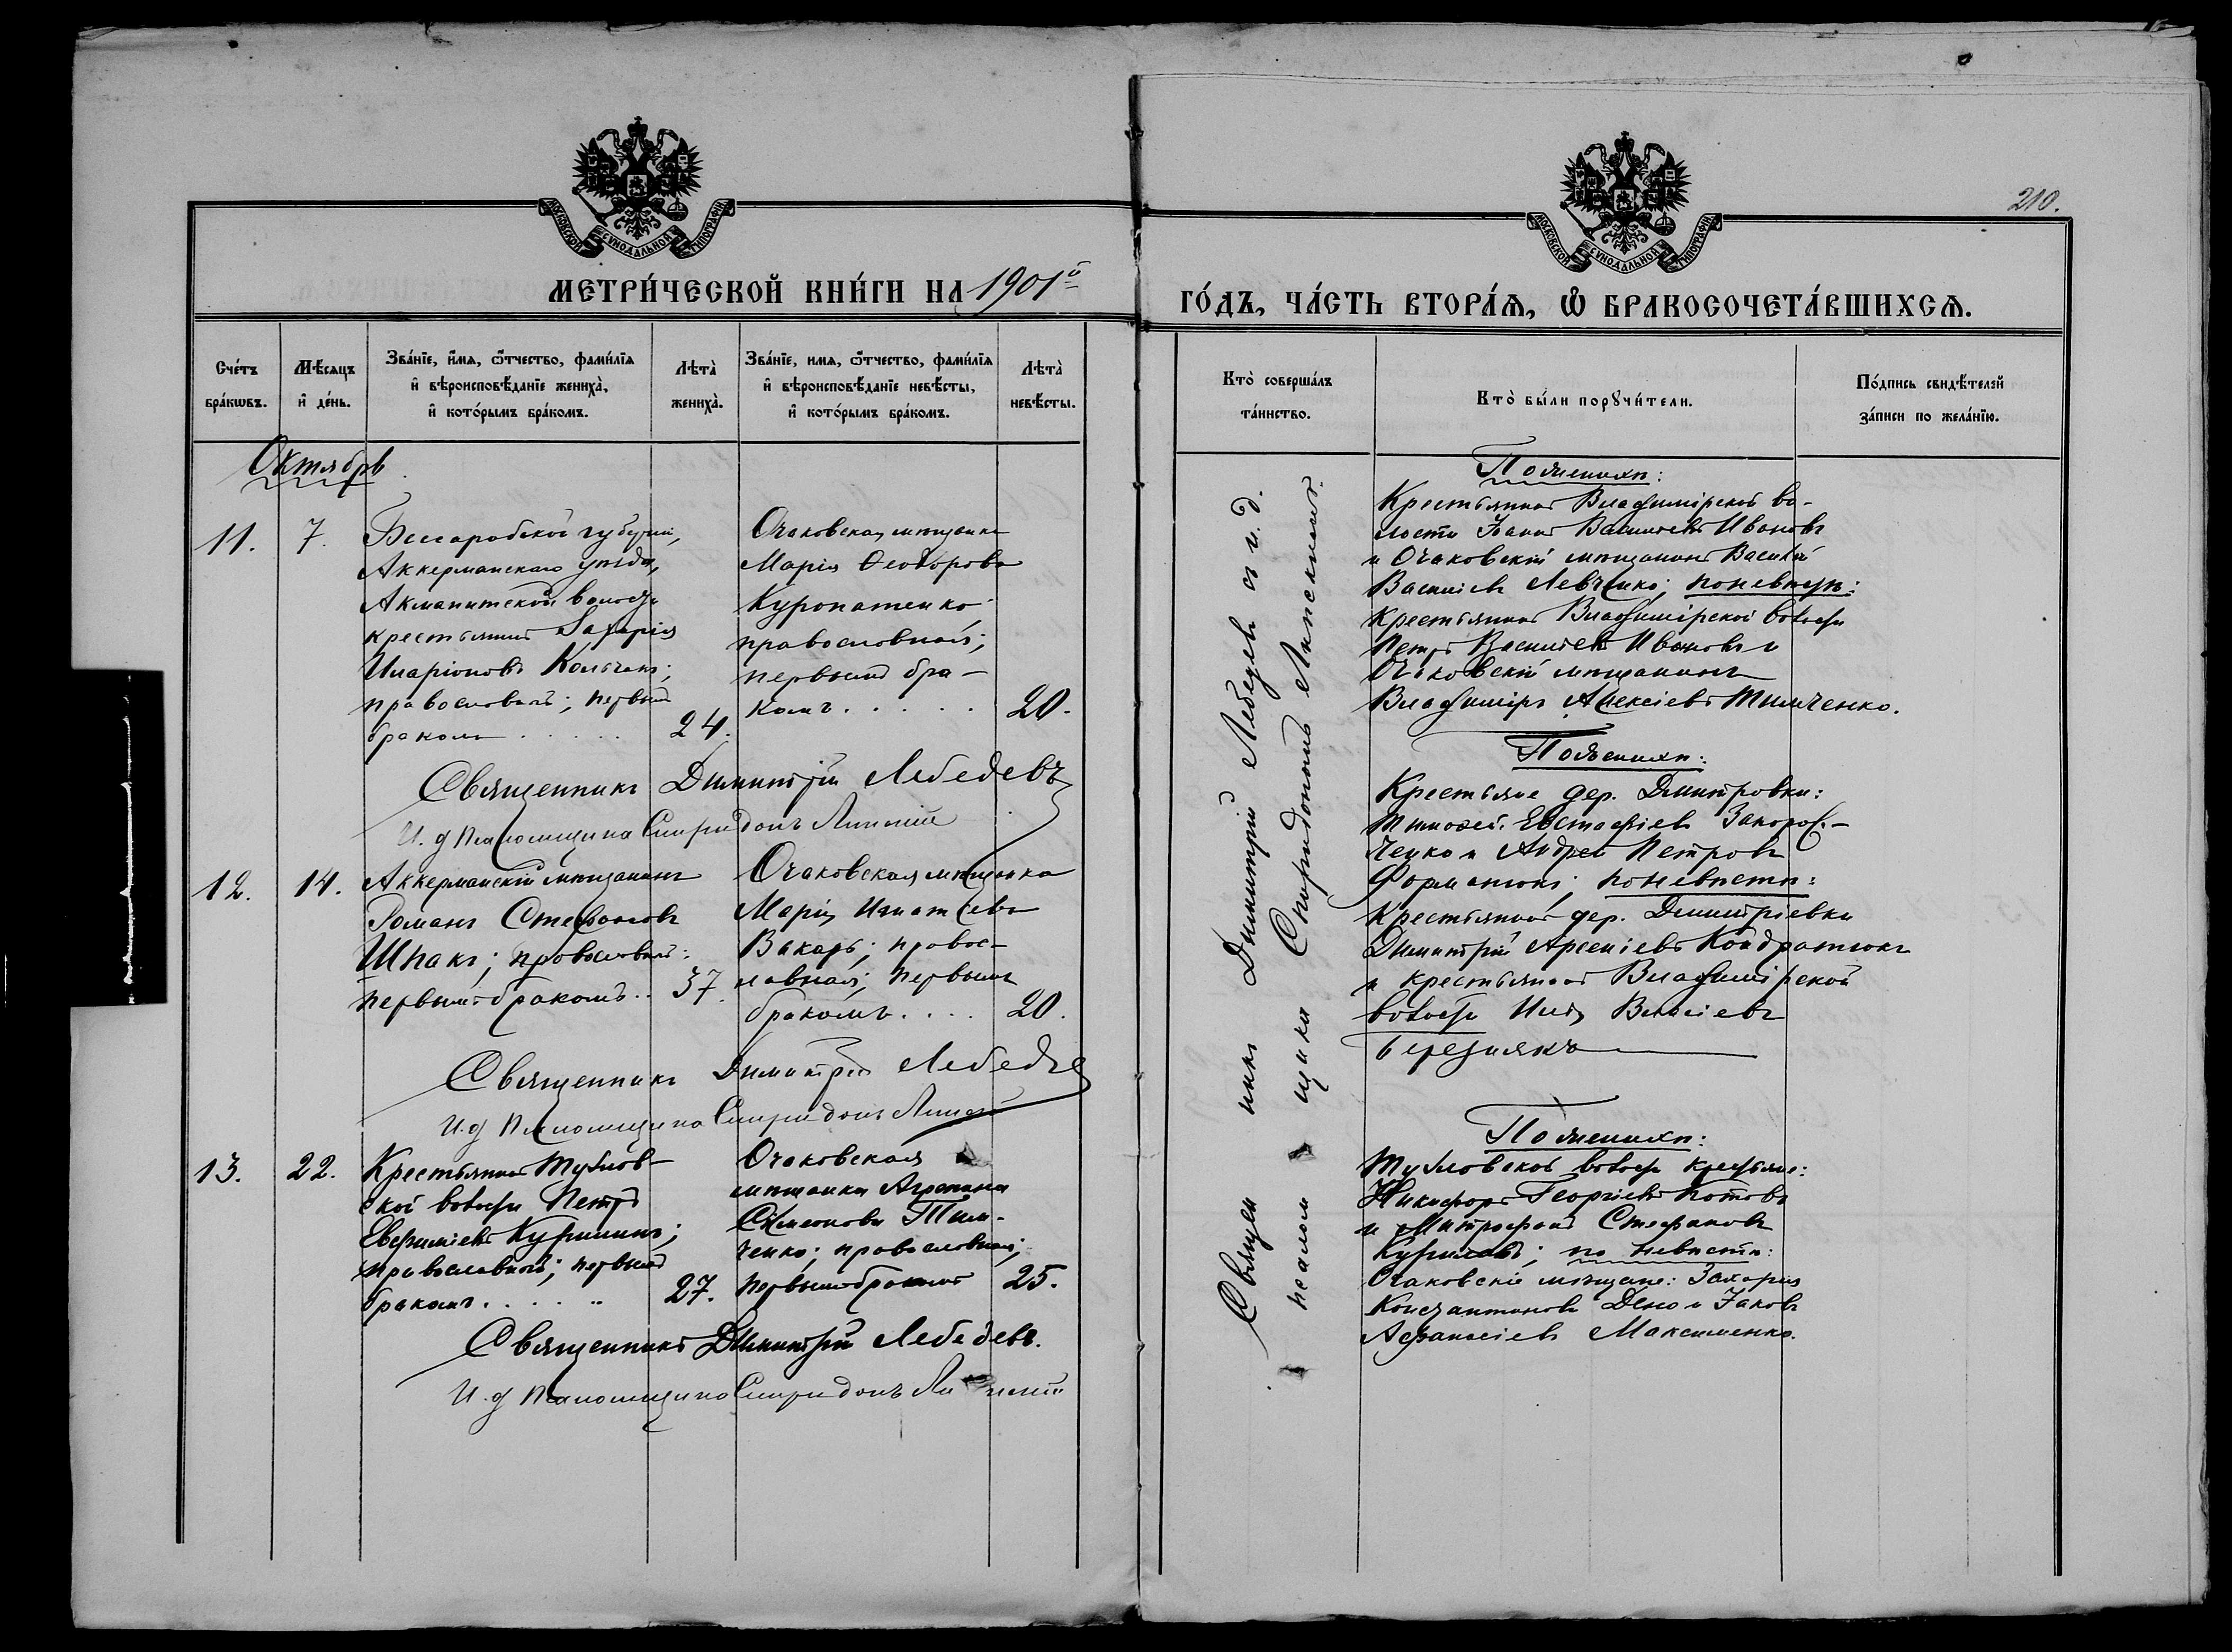 МОСКОВСКОЙ СУНОДАЛЬНОЙ ТИПОГРАФІИ
МЕТРИ́ЧЕСКОЙ КНИ́ГИ НА 1901й
Сче́тъ бра́кѡвъ.
Мѣ́сяцъ и҆ де́нь.
Зва́нїе, и҆́мя, ѻ҆́тчество, фами́лїя
и҆ вѣроисповѣ́данїе жениха̀,
и҆ кото́рымъ бра́комъ.
Лѣта̀ жениха̀.
Зва́нїе, имя, ѻ҆́тчество, фами́лїя
и҆ вѣроисповѣ́данїе невѣ́сты,
и҆ кото́рымъ бра́комъ.
Лѣта̀ невѣ́сты.
Октябрь
11.
7.
Бессарабской губерніи,
Аккерманскаго уѣзда,
Акмангитской волости
крестьянинъ Захарія
Иларіоновъ
православный; первымъ
бракомъ . . . . .
24.
Очаковская мѣщанка
Марія Ѳеодорова
Куропатенко
православная;
первымъ бра-
комъ . . . . .
20.
Священникъ Димитрій Лебедевъ
И. д Псаломщика Спиридонъ Липскій
12.
14.
Аккерманскій мѣщанинъ
Романъ Стефановъ
Шпакъ; православный;
первымъ бракомъ . .
37.
Очаковская мѣщанка
Марія Игнатьева
Викарь; правос-
лавная; первымъ
бракомъ . . . .
20.
Священникъ Димитрій Лебедевъ
И. д Псаломщика Спиридонъ Липскій
13.
22.
Крестьянинъ Тузлов-
ской волости Петръ
Евфиміевъ
православный; первымъ
бракомъ . . . . . .
27.
Очаковская
мѣщанка Агрипина
Симеонова Тим-
ченко; православная;
первымъ бракомъ
25.
Священникъ Димитрій Лебедевъ.
И. д Псаломщика Спиридонъ Липскій
210.
МОСКОВСКОЙ СУНОДАЛЬНОЙ ТИПОГРАФІИ
ГО́ДЪ, ЧА́СТЬ ВТОРА́Ѧ, Ѽ БРАКОСОЧЕТА́ВШИХСѦ.
Кто̀ соверша́лъ та́инство.
Кто̀ бы́ли порꙋчи́тели.
По́дпись свидѣ́телей
за́писи по жела́нїю.
Священникъ Димитрій Лебедевъ съ и. д.
псаломщика Спиридономъ Липскимъ.
По женихѣ:
Крестьянинъ Владимірской во-
лости Іоаннъ Васильевъ Ивановъ
и Очаковскій мѣщанинъ Василій
Васильевъ Левченко; по невѣстѣ:
крестьянинъ Владимірской волости
Петръ Васильевъ Ивановъ и
Очаковскій мѣщанинъ
Владиміръ Алексіевъ Тимченко.
По женихѣ:
Крестьяне дер. Дмитровки:
Тимоѳей Евстафіевъ
Андрей Петровъ
Форманюкъ; по невѣстѣ:
Крестьянинъ дер. Димитріевки
Димитрій Арсеніевъ Кондратюкъ
и крестьянинъ Владимірской
волости Илія Власіевъ
Березнякъ
По женихѣ:
Тузловской волости крестьяне:
Никифоръ Георгіевъ Котовъ
и Митрофанъ Стефановъ
по невѣстѣ:
Очаковскіе мѣщане: Захарія
Константиновъ Дено и Іаковъ
Афанасіевъ Максименко.